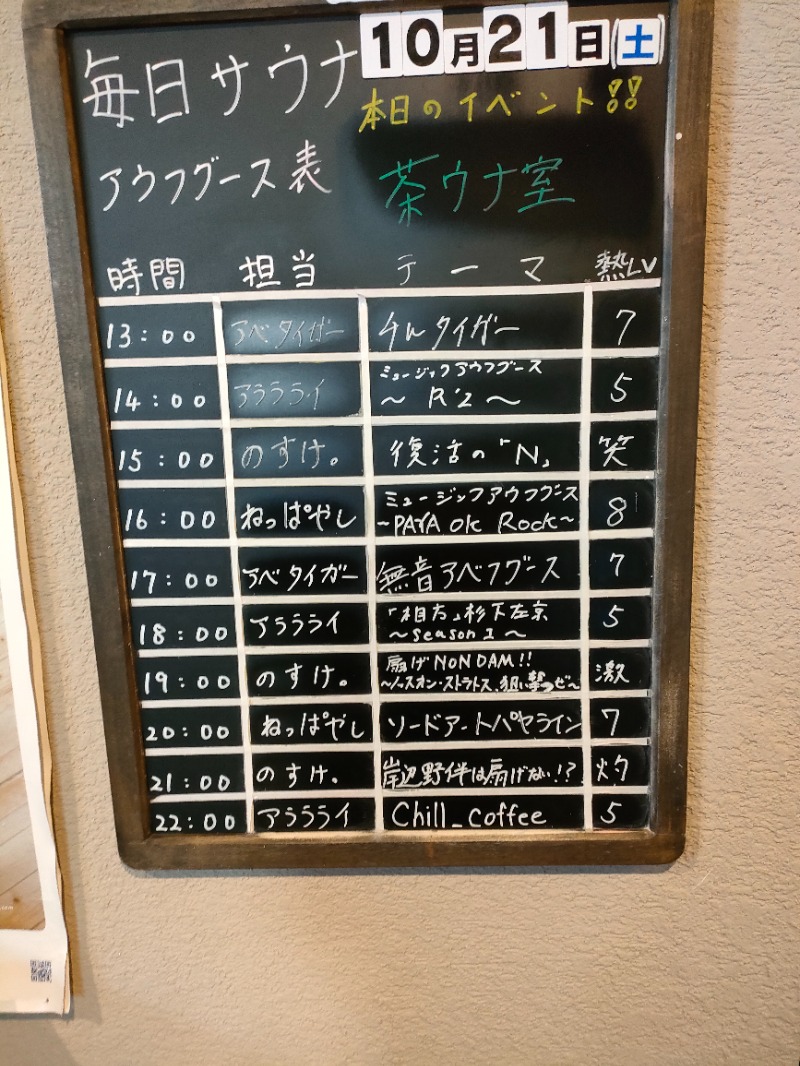 毎日サウナ
10月21日(土)
本日のイベント!!
アウフグース表
茶ウナ室
時間 担当 テーマ 熱LV
13:00 アベタイガー チルタイガー 7
14:00 アラララィ ミュージックアウフグース
～R'2～ 5
15:00 のすけ。 復活の「N」 笑
16:00 ねっぱやし ミュージックアウフグース
～PAYA OK Rock～ 8
17:00 アベタイガー 無音アベフグース 7
18:00 アラララィ 「相方」杉下左京
～Season 1～ 5
19:00 のすけ。 扇げNONDAM!!
～ノスオン・ストラトス、狙い撃つぜ～ 激
20:00 ねっぱやし ソードアートパヤライン 7
21:00 のすけ。 岸辺野伴は扇げない!? 灼
22:00 アラララィ Chill_coffee 5